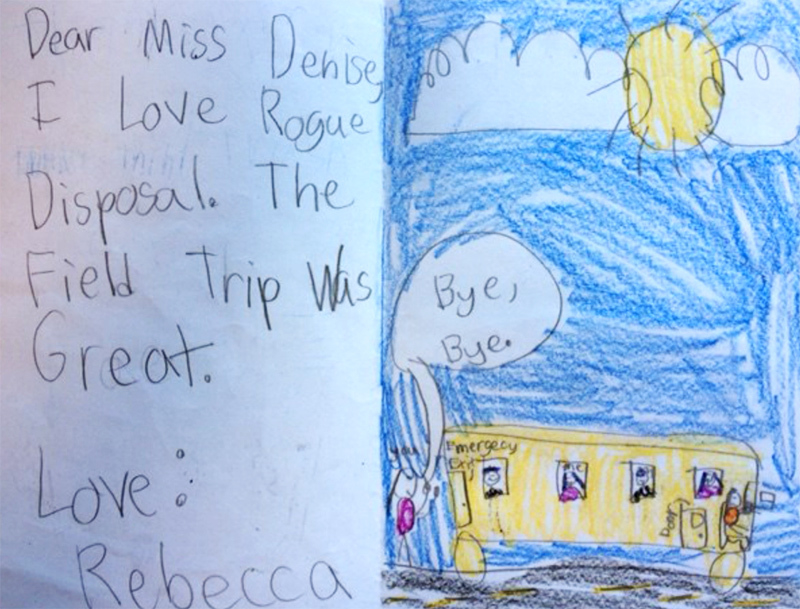 Dear Miss Denise,
I Love Rogue
Disposal. The
Field Trip Was
Great.
Love:
Rebecca
Bye,
Bye.
you
Emergecy
Exit
Door